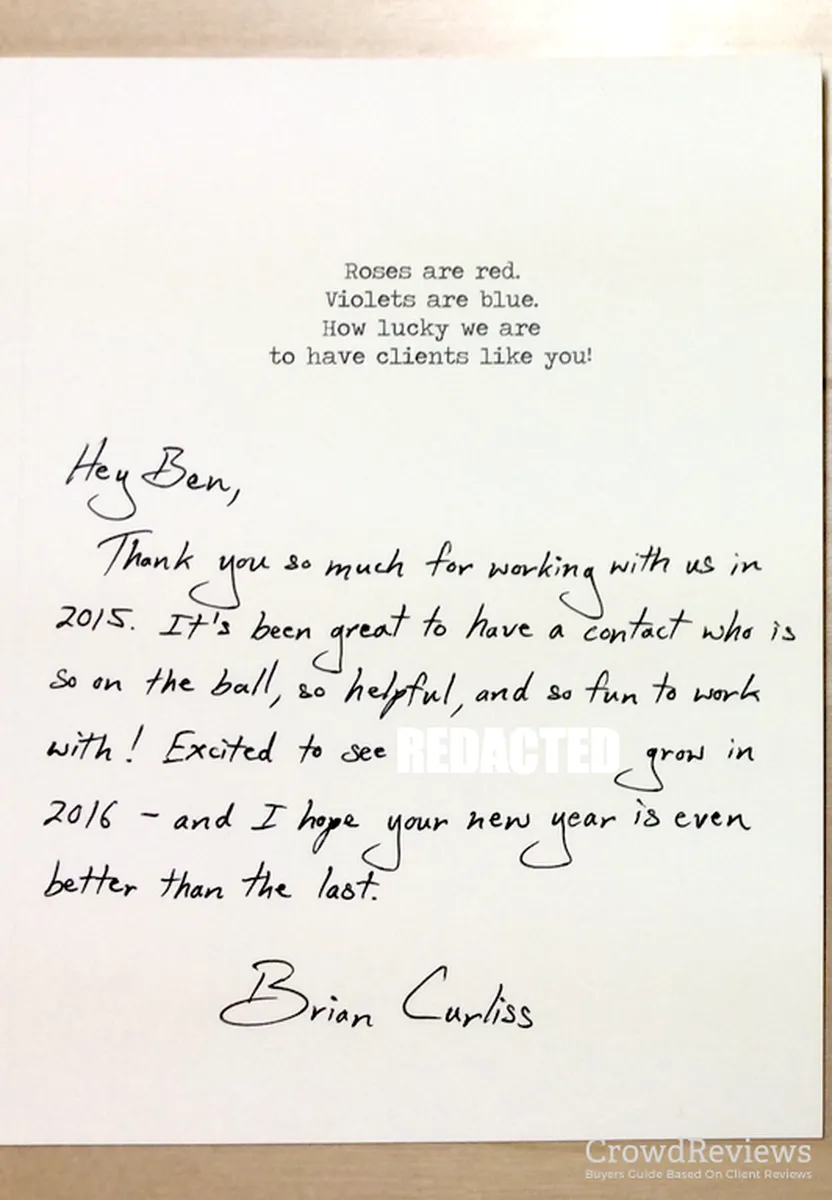 Roses are red.
Violets are blue.
How lucky we are
to have clients like you!
Hey Ben,
Thank you so much for working with us in
2015. It's been great to have a contact who is
so on the ball, so helpful, and so fun to work
with! Excited to see REDACTED grow in
2016 - and I hope your new year is even
better than the last.
Brian Curliss
CrowdReviews
Buyers Guide Based On Client Reviews